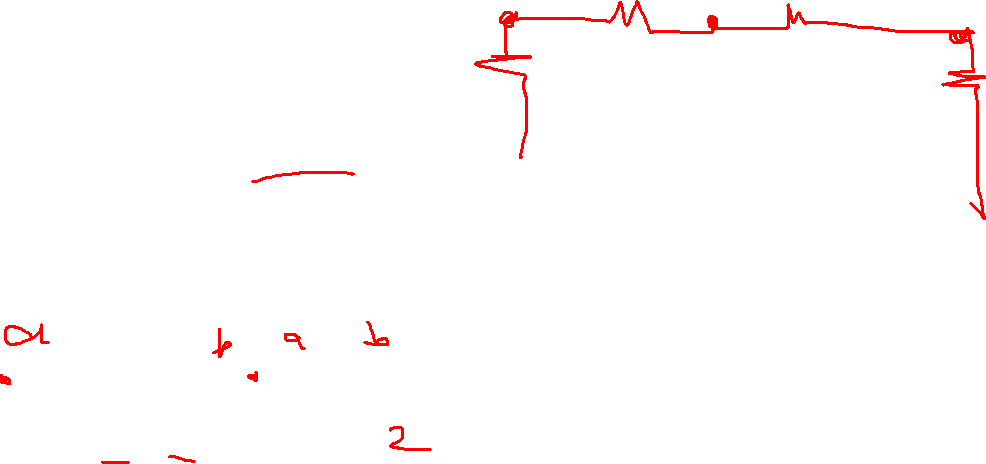 a b a b
2